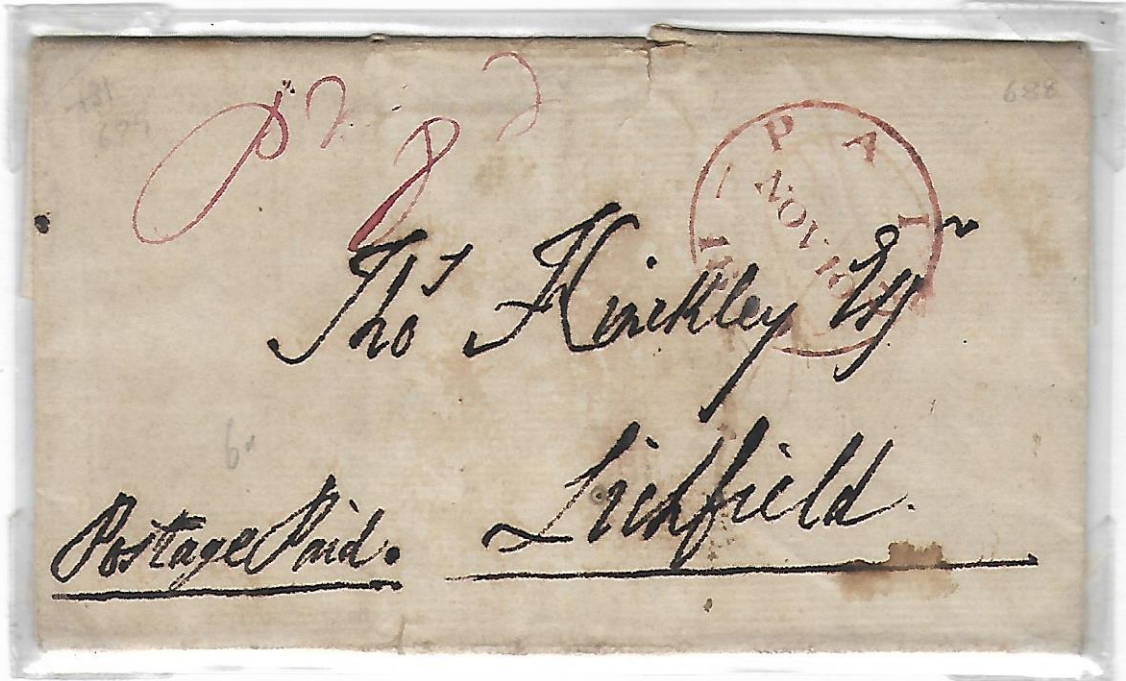 681
688
PAI
NOV 10
Thos Hinckley Esqr
Lichfield.
Postage Paid.